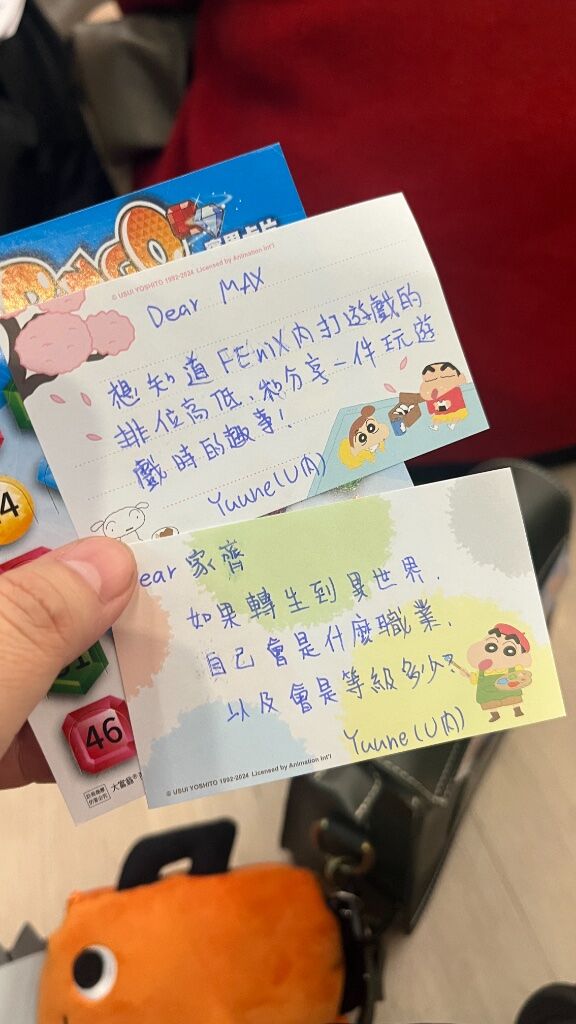 BINGO
© USUI YOSHITO 1992-2024 Licensed by Animation Int'l
Dear MAX
想知道FENIX內打遊戲的
排位高低、和分享一件玩遊
戲時的趣事!
Yuune(U內)
ear 家齊
如果轉生到異世界.
自己會是什麼職業.
以及會是等級多少?
Yuune(U內)
© USUI YOSHITO 1992-2024 Licensed by Animation Int'l
4
31
46
大富翁®